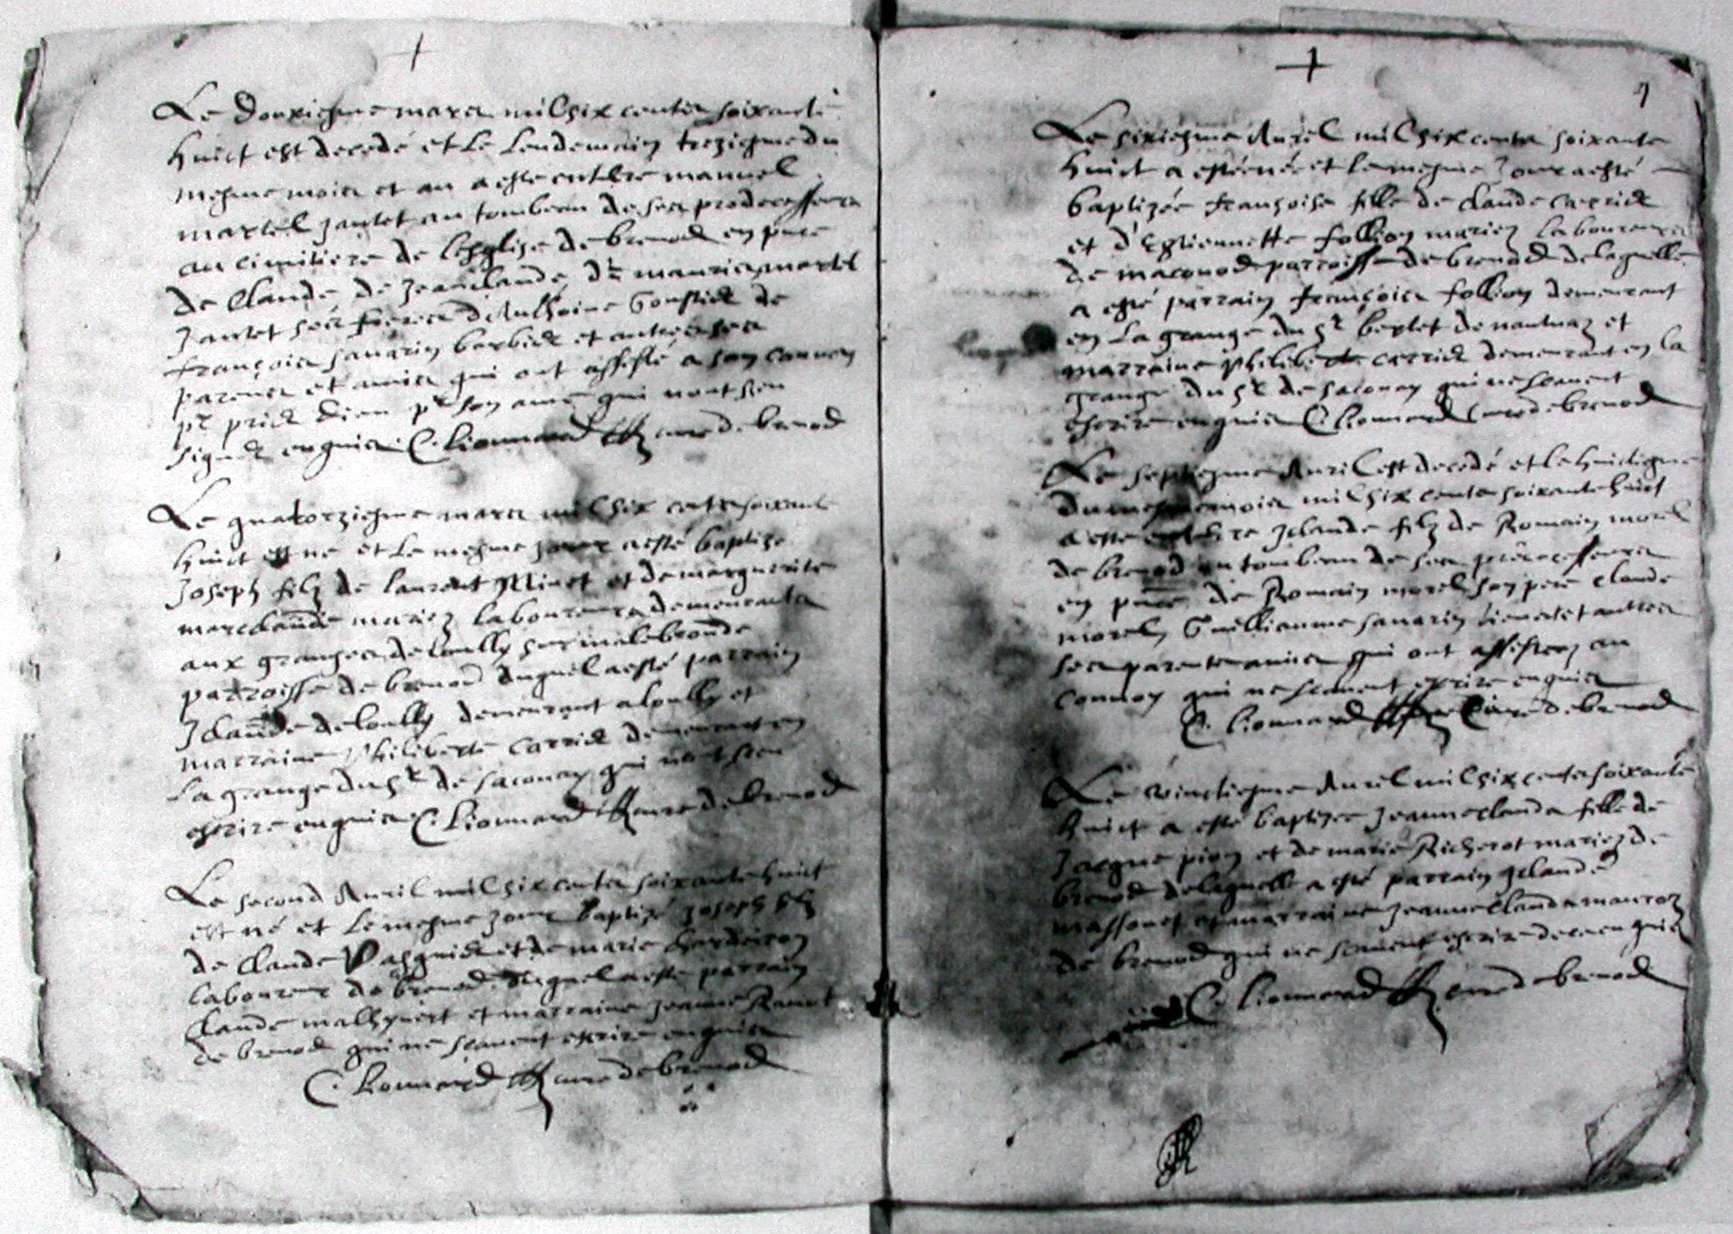 Le douziesme mars mil six cents soixante
huict est decedé et le lendemain treziesme du
mesme mois et an a esté enterre manuel
martel Jantet au tombeau de ses predecesseurs
au cimitiere de lesglize de brenod en pnce
de Claude, de Jean claude, maurice martel
Jantet ses freres d'Anthoine Goussid de
françois sauarin barbier et autres ses
parens et amis qui ont assisté a son conuoy
pr prier dieu pr son ame qui nont sceu
signer enquis C. Lionnard curé de brenod
Le quatorziesme mars mil six cents soixante
huict est né et le mesme jour a esté baptize
Joseph filz de laurent et de marguerite
marchand mariez laboureurs demeurants
aux granges de loully sur malebronde
parroisse de brenod duquel a esté parrain
Jclaude de loully demeurant a loully et
marraine philiberte carrier demeurant en
La grange du Sr de saconay qui n'ont sceu
escrire enquis C. Lionnard curé de brenod
Le second Auril mil six cents soixante huict
est né et le mesme jour baptizé Joseph filz
de Claude Pasquier et de marie
laboureur de brenod duquel a esté parrain
Claude et marraine Jeanne
de brenod qui ne scauent escrire enquis
C. Lionnard curé de brenod
Le sixiesme Auril mil six cents soixante
huict a esté née et le mesme Jour a esté
baptizée françoise fille de claude carrier
et d'Estiennette follion mariez laboureurs
de maconod parroisse de brenod de laquelle
a esté parrain françois follion demeurant
en la grange du Sr de nantuaz et
marraine philiberte carrier demeurant en la
grange du Sr de saconay qui ne scauent
escrire enquis C. Lionnard Curé de brenod
Le septiesme Auril est decedé et le huictiesme
du mesme mois mil six cents soixante huict
a esté enterre Jclaude filz de Romain morel
de brenod au tombeau de ses predecesseurs
en pnce de Romain morel son pere claude
morel Guilliaume sauarin et autres
ses parents amis qui ont assistez au
conuoy qui ne scauent escrire enquis
C. Lionnard Curé de brenod
Le vinctiesme Auril mil six cents soixante
huict a esté baptizee Jeanne clauda fille de
Jacque pion et de marie Richerot mariez de
brenod de laquelle a esté parrain Jclaude
massonet et marraine Jeanne clauda
de brenod qui ne scauent escrire de ce enquis
C. Lionnard curé de brenod